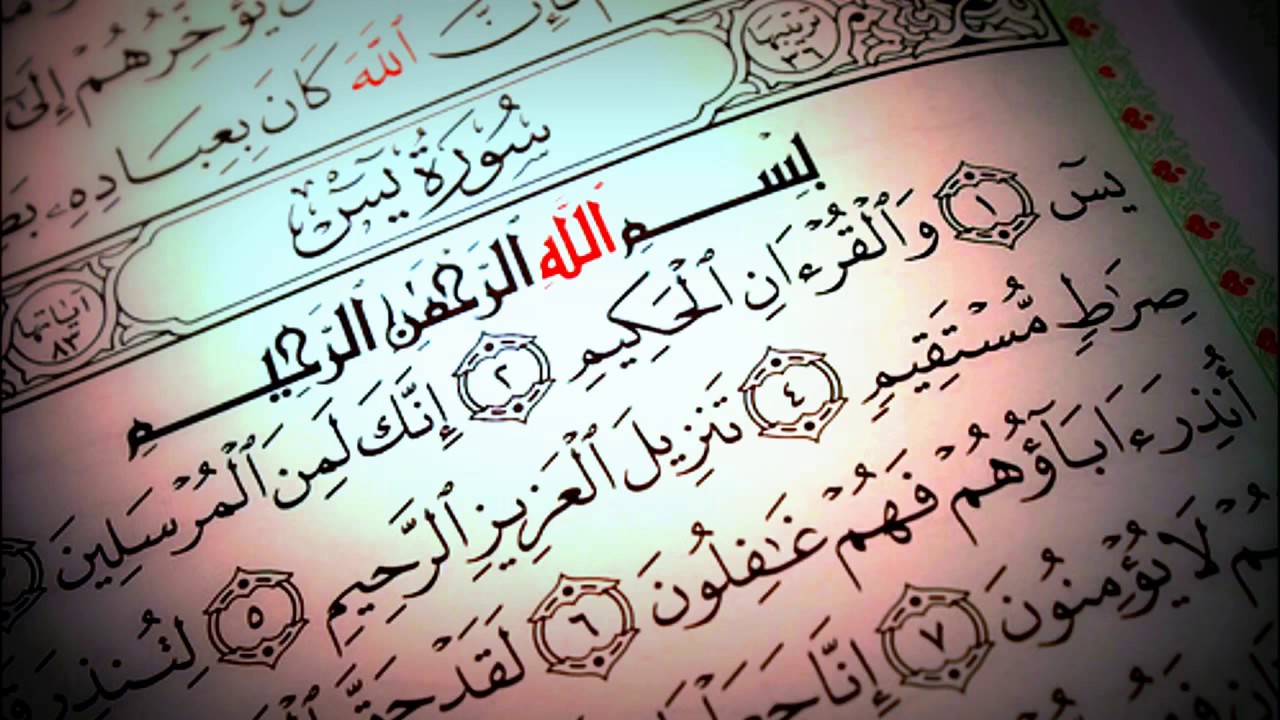 يُؤَخِّرُهُمْ إِلَىٰ
فَإِنَّ ٱللَّهَ كَانَ بِعِبَادِهِۦ
تَرْتِيبُهَا ٣٦
سُورَةُ يسٓ
آيَاتُهَا ٨٣
بِسْمِ اللَّهِ الرَّحْمَٰنِ الرَّحِيمِ
يسٓ ١ وَٱلْقُرْءَانِ ٱلْحَكِيمِ ٢ إِنَّكَ لَمِنَ ٱلْمُرْسَلِينَ
صِرَٰطٍ مُّسْتَقِيمٍ ٤ تَنزِيلَ ٱلْعَزِيزِ ٱلرَّحِيمِ ٥ لِتُنذِرَ
أُنذِرَ ءَابَآؤُهُمْ فَهُمْ غَٰفِلُونَ ٦ لَقَدْ حَقَّ
لَا يُؤْمِنُونَ ٧ إِنَّا جَعَلْنَا